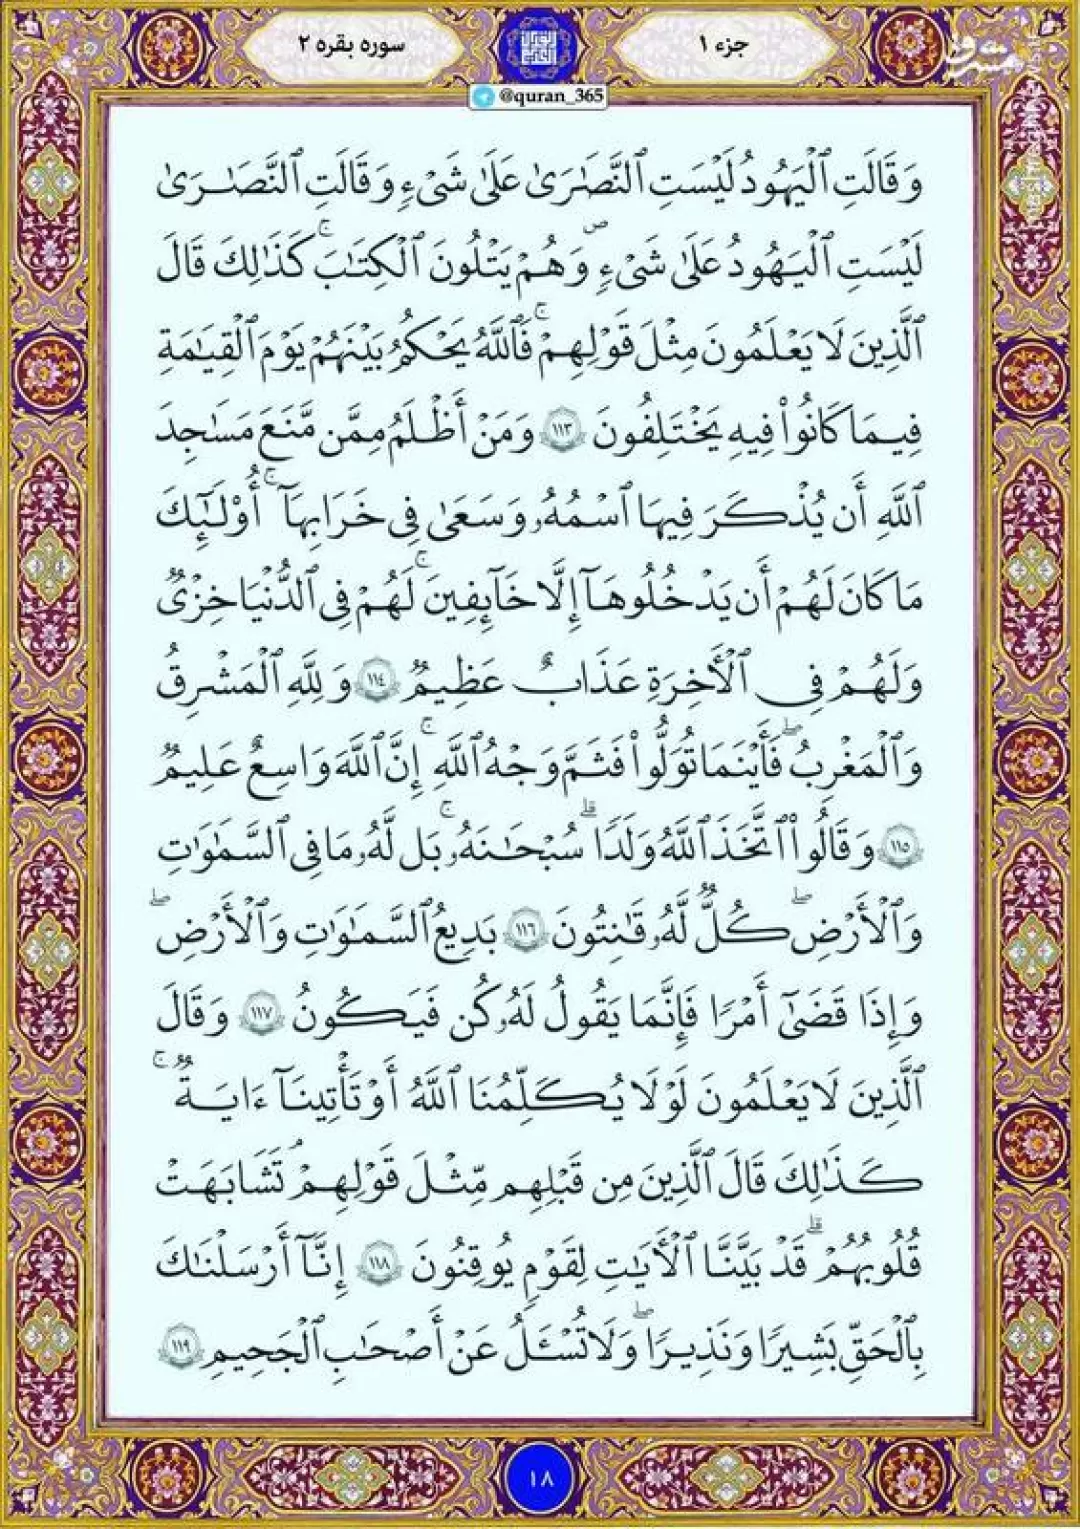 جزء ۱
سوره بقره ۲
@quran_365
وَقَالَتِ ٱلْيَهُودُ لَيْسَتِ ٱلنَّصَٰرَىٰ عَلَىٰ شَىْءٍ وَقَالَتِ ٱلنَّصَٰرَىٰ
لَيْسَتِ ٱلْيَهُودُ عَلَىٰ شَىْءٍ ۙ وَهُمْ يَتْلُونَ ٱلْكِتَٰبَ ۚ كَذَٰلِكَ قَالَ
ٱلَّذِينَ لَا يَعْلَمُونَ مِثْلَ قَوْلِهِمْ ۚ فَٱللَّهُ يَحْكُمُ بَيْنَهُمْ يَوْمَ ٱلْقِيَٰمَةِ
فِيمَا كَانُوا۟ فِيهِ يَخْتَلِفُونَ ١١٣ وَمَنْ أَظْلَمُ مِمَّن مَّنَعَ مَسَٰجِدَ
ٱللَّهِ أَن يُذْكَرَ فِيهَا ٱسْمُهُۥ وَسَعَىٰ فِى خَرَابِهَآ ۚ أُو۟لَٰٓئِكَ
مَا كَانَ لَهُمْ أَن يَدْخُلُوهَآ إِلَّا خَآئِفِينَ ۚ لَهُمْ فِى ٱلدُّنْيَا خِزْىٌ
وَلَهُمْ فِى ٱلْأَخِرَةِ عَذَابٌ عَظِيمٌ ١١٤ وَلِلَّهِ ٱلْمَشْرِقُ
وَٱلْمَغْرِبُ ۖ فَأَيْنَمَا تُوَلُّوا۟ فَثَمَّ وَجْهُ ٱللَّهِ ۚ إِنَّ ٱللَّهَ وَاسِعٌ عَلِيمٌ
١١٥ وَقَالُوا۟ ٱتَّخَذَ ٱللَّهُ وَلَدًا ۗ سُبْحَٰنَهُۥ ۚ بَل لَّهُۥ مَا فِى ٱلسَّمَٰوَٰتِ
وَٱلْأَرْضِ ۖ كُلٌّ لَّهُۥ قَٰنِتُونَ ١١٦ بَدِيعُ ٱلسَّمَٰوَٰتِ وَٱلْأَرْضِ ۖ
وَإِذَا قَضَىٰٓ أَمْرًا فَإِنَّمَا يَقُولُ لَهُۥ كُن فَيَكُونُ ١١٧ وَقَالَ
ٱلَّذِينَ لَا يَعْلَمُونَ لَوْلَا يُكَلِّمُنَا ٱللَّهُ أَوْ تَأْتِينَآ ءَايَةٌ ۚ
كَذَٰلِكَ قَالَ ٱلَّذِينَ مِن قَبْلِهِم مِّثْلَ قَوْلِهِمْ ۘ تَشَٰبَهَتْ
قُلُوبُهُمْ ۗ قَدْ بَيَّنَّا ٱلْأَيَٰتِ لِقَوْمٍ يُوقِنُونَ ١١٨ إِنَّآ أَرْسَلْنَٰكَ
بِٱلْحَقِّ بَشِيرًا وَنَذِيرًا ۖ وَلَا تُسْـَٔلُ عَنْ أَصْحَٰبِ ٱلْجَحِيمِ ١١٩
١٨